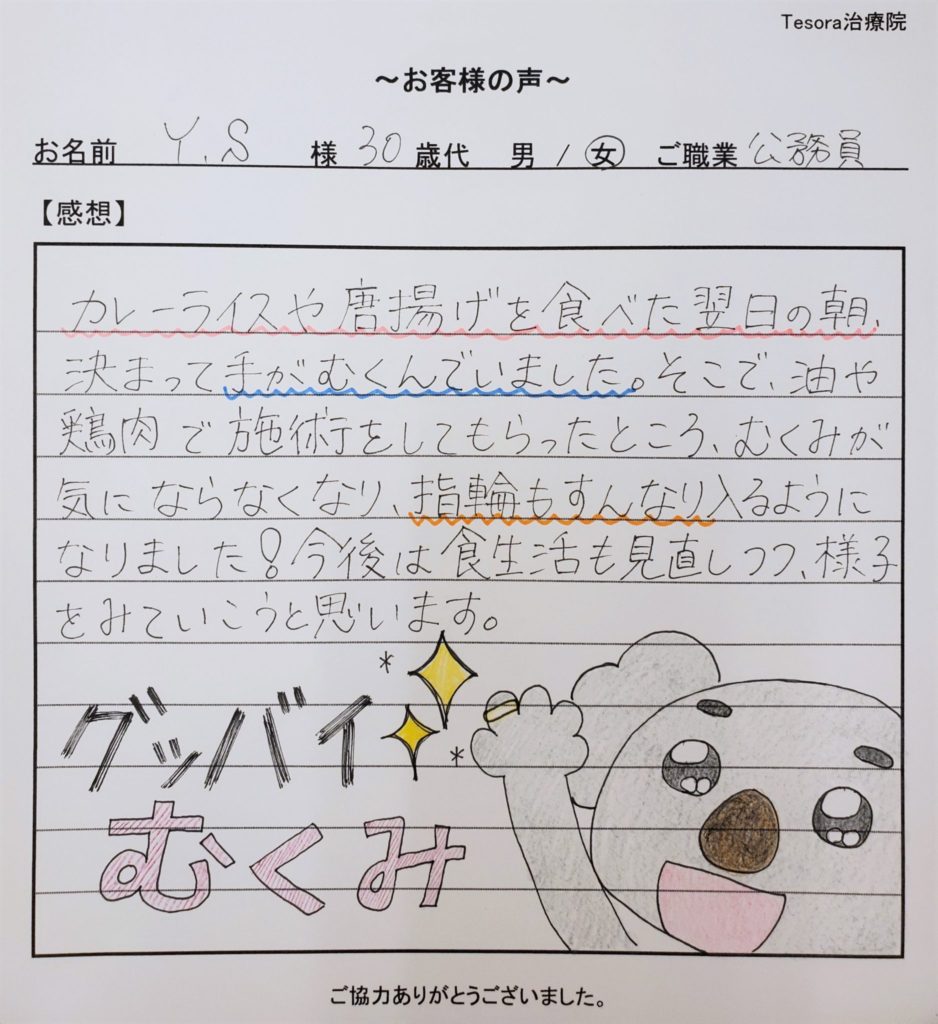 Tesora治療院
～お客様の声～
お名前 Y.S 様 30歳代 男 / 女 ご職業 公務員
【感想】
カレーライスや唐揚げを食べた翌日の朝、
決まって手がむくんでいました。そこで、油や
鶏肉で施術をしてもらったところ、むくみが
気にならなくなり、指輪もすんなり入るように
なりました!今後は食生活も見直しつつ、様子
をみていこうと思います。
グッバイ
むくみ
ご協力ありがとうございました。